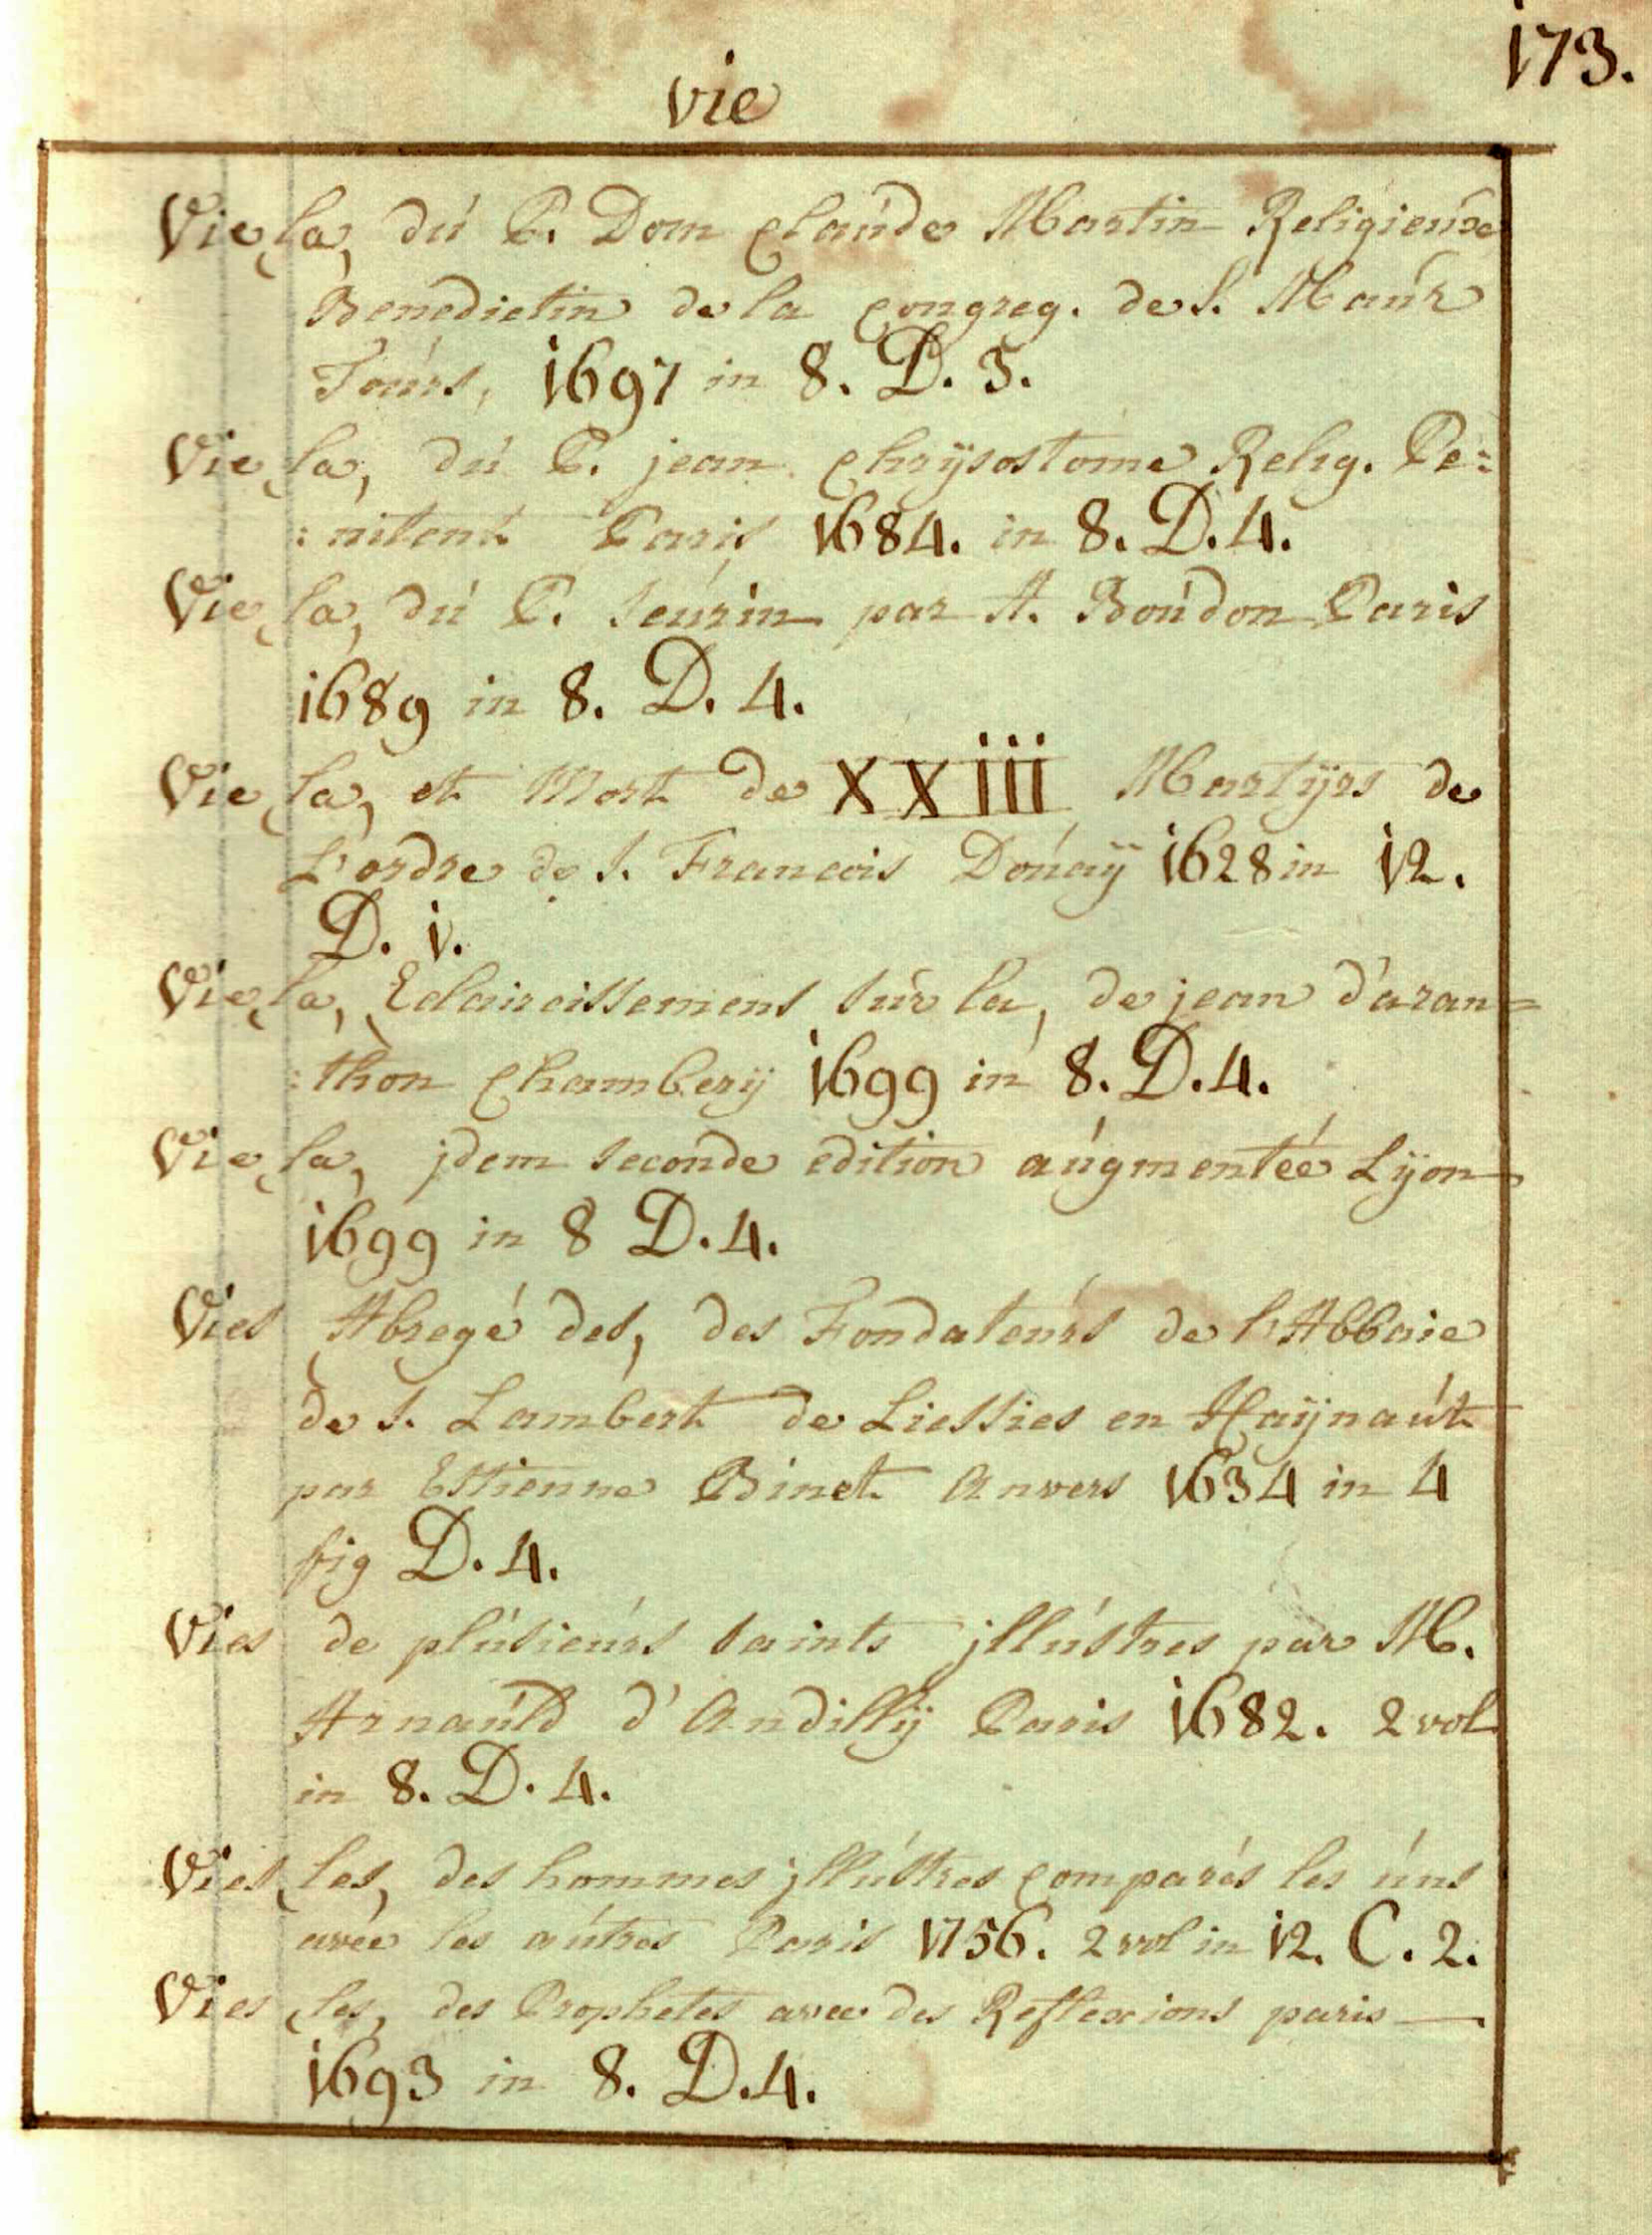 173.
vie
Vie la, du P. Dom Claude Martin Religieuxe
Benedictin de la Congreg. de S. Maur
Tours, 1697 in 8. D. 3.
Vie la, du P. jean Chrÿsostome Relig. Pe=
:nitent Paris 1684. in 8. D. 4.
Vie la, du P. Seurin par A. Boudon Paris
1689 in 8. D. 4.
Vie la, et Mort de XXiii Martÿrs de
L'ordre de S. Francois Douaÿ 1628 in 12.
D. 1.
Vie la, Eclaircissemens sur la, de jean d'aran=
:thon Chamberÿ 1699 in 8. D. 4.
Vie la, jdem seconde edition augmentéé Lÿon
1699 in 8 D. 4.
Vies Abregé des, des Fondateurs de l'Abbaie
de S. Lambert de Liessies en Haÿnaut
par Estienne Binet Anvers 1634 in 4
fig D. 4.
Vies de plusieurs saints jllustres par M.
Arnauld d'Andillÿ Paris 1682. 2 vol
in 8. D. 4.
Vies les, des hommes jllustres comparés les uns
avec les autres Paris 1756. 2 vol in 12. C. 2.
Vies les, des Prophetes avec des Reflexions paris —
1693 in 8. D. 4.